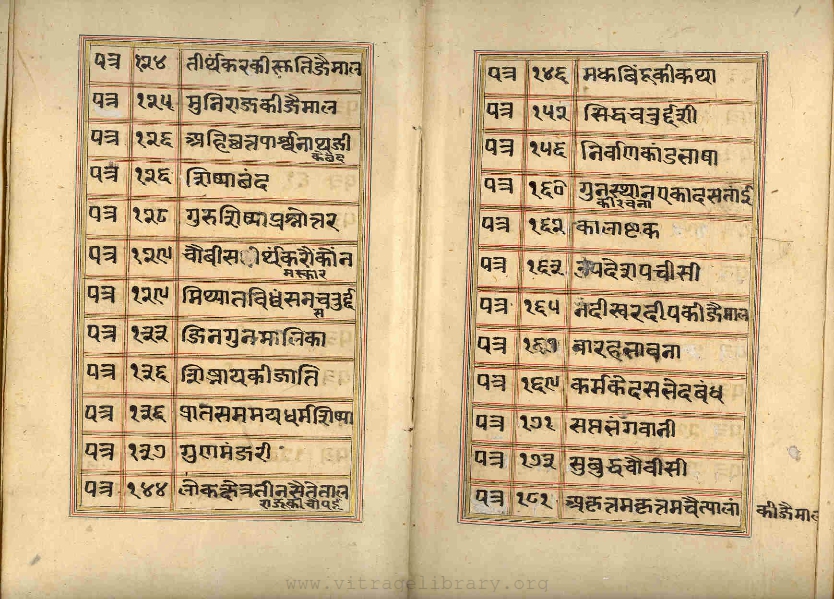 पत्र १२४ तीर्थंकरकीस्तुतिजैमाल
पत्र १२५ मुनिराजकीजैमाल
पत्र १२६ अहिछत्रपार्श्वनाथजी
कैछंद
पत्र १२६ शिष्याछंद
पत्र १२८ गुरुशिष्याप्रश्नोत्तर
पत्र १२९ चौवीसतीर्थंकरौकौन
मस्कार
पत्र १२९ मिथ्यातविध्वंसनचतुर्द
पत्र १३३ जिनगुनमालिका
पत्र १३६ सिज्ञायकीजाति
पत्र १३६
पत्र १३७ गुणमंजरी
पत्र १४४ लोकक्षेत्रतीनसैतेताल
राजूकीचौपई
पत्र १४६ मधुबिंदूकीकथा
पत्र १५२ सिद्धचतुर्दशी
पत्र १५६ निर्वाणकांडभाषा
पत्र १६० गुनस्थानएकादसतांई
पत्र १६२ कालाष्टक
पत्र १६३ उपदेशपचीसी
पत्र १६५ नंदीस्वरदीपकीजैमाल
पत्र बारहभावना
पत्र १६९ कर्मकैदसभेदबंध
पत्र १७१ सप्तभंगवानी
पत्र १७३ सुबुद्धचौवीसी
पत्र १८१ अकृत्तमकृत्तमचैत्यालां कीजैमाल